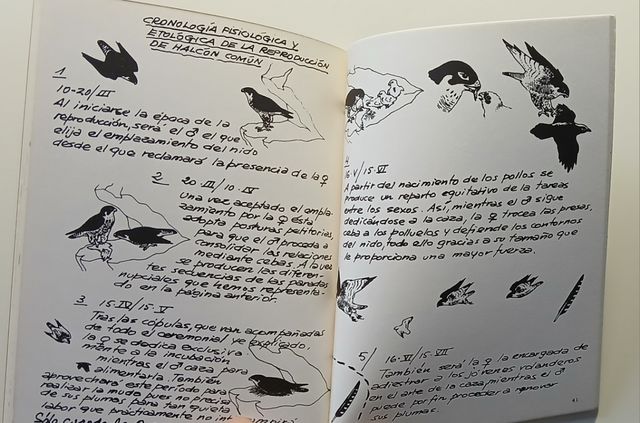 CRONOLOGÍA FISIOLÓGICA Y
ETOLÓGICA DE LA REPRODUCCIÓN
DE HALCÓN COMÚN
1
10-20/III
Al iniciarse la época de la
reproducción, será el ♂ el que
elija el emplazamiento del nido
desde el que reclamará la presencia de la ♀
2
20-III/10-IV
Una vez aceptado el empla-
zamiento por la ♀ ésta
adopta posturas petitorias,
para que el ♂ proceda a
consolidar las relaciones
mediante cebas. A la vez
se producen las diferen-
tes secuencias de las paradas
nupciales que hemos representa-
do en la página anterior.
3 15-IV/15-V
Tras las cópulas, que van acompañadas
de todo el ceremonial ya explicado,
la ♀ se dedica exclusiva
mente a la incubación
mientras el ♂ caza para
alimentarla. También
aprovechará este período para
realizar la muda pues no precisa
de sus plumas para tan quieta
labor que prácticamente no
Sólo cuando
4
16-V/15-VI
A partir del nacimiento de los pollos se
produce un reparto equitativo de la tareas
entre los sexos. Así, mientras el ♂ sigue
dedicándose a la caza, la ♀ trocea las presas,
ceba a los polluelos y defiende los contornos
del nido, todo ello gracias a su tamaño que
le proporciona una mayor fuerza.
5/ 16-VI/15-VII
También será la ♀ la encargada de
adiestrar a los jóvenes volanderos
en el arte de la caza mientras el ♂
puede por fin, proceder a renovar
sus plumas.
41